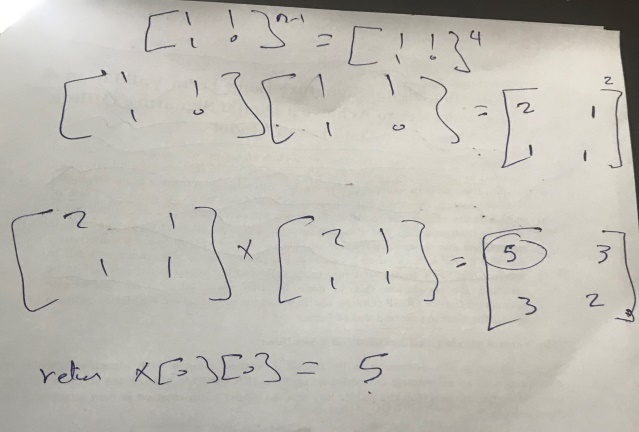 [1 1 1 0]^n-1 = [1 1 1 1]^4
[1 1 1 0] [1 1 1 0] = [2 1 1 1]^2
[2 1 1 1] × [2 1 1 1] = [5 3 3 2]
retun x[0][0] = 5